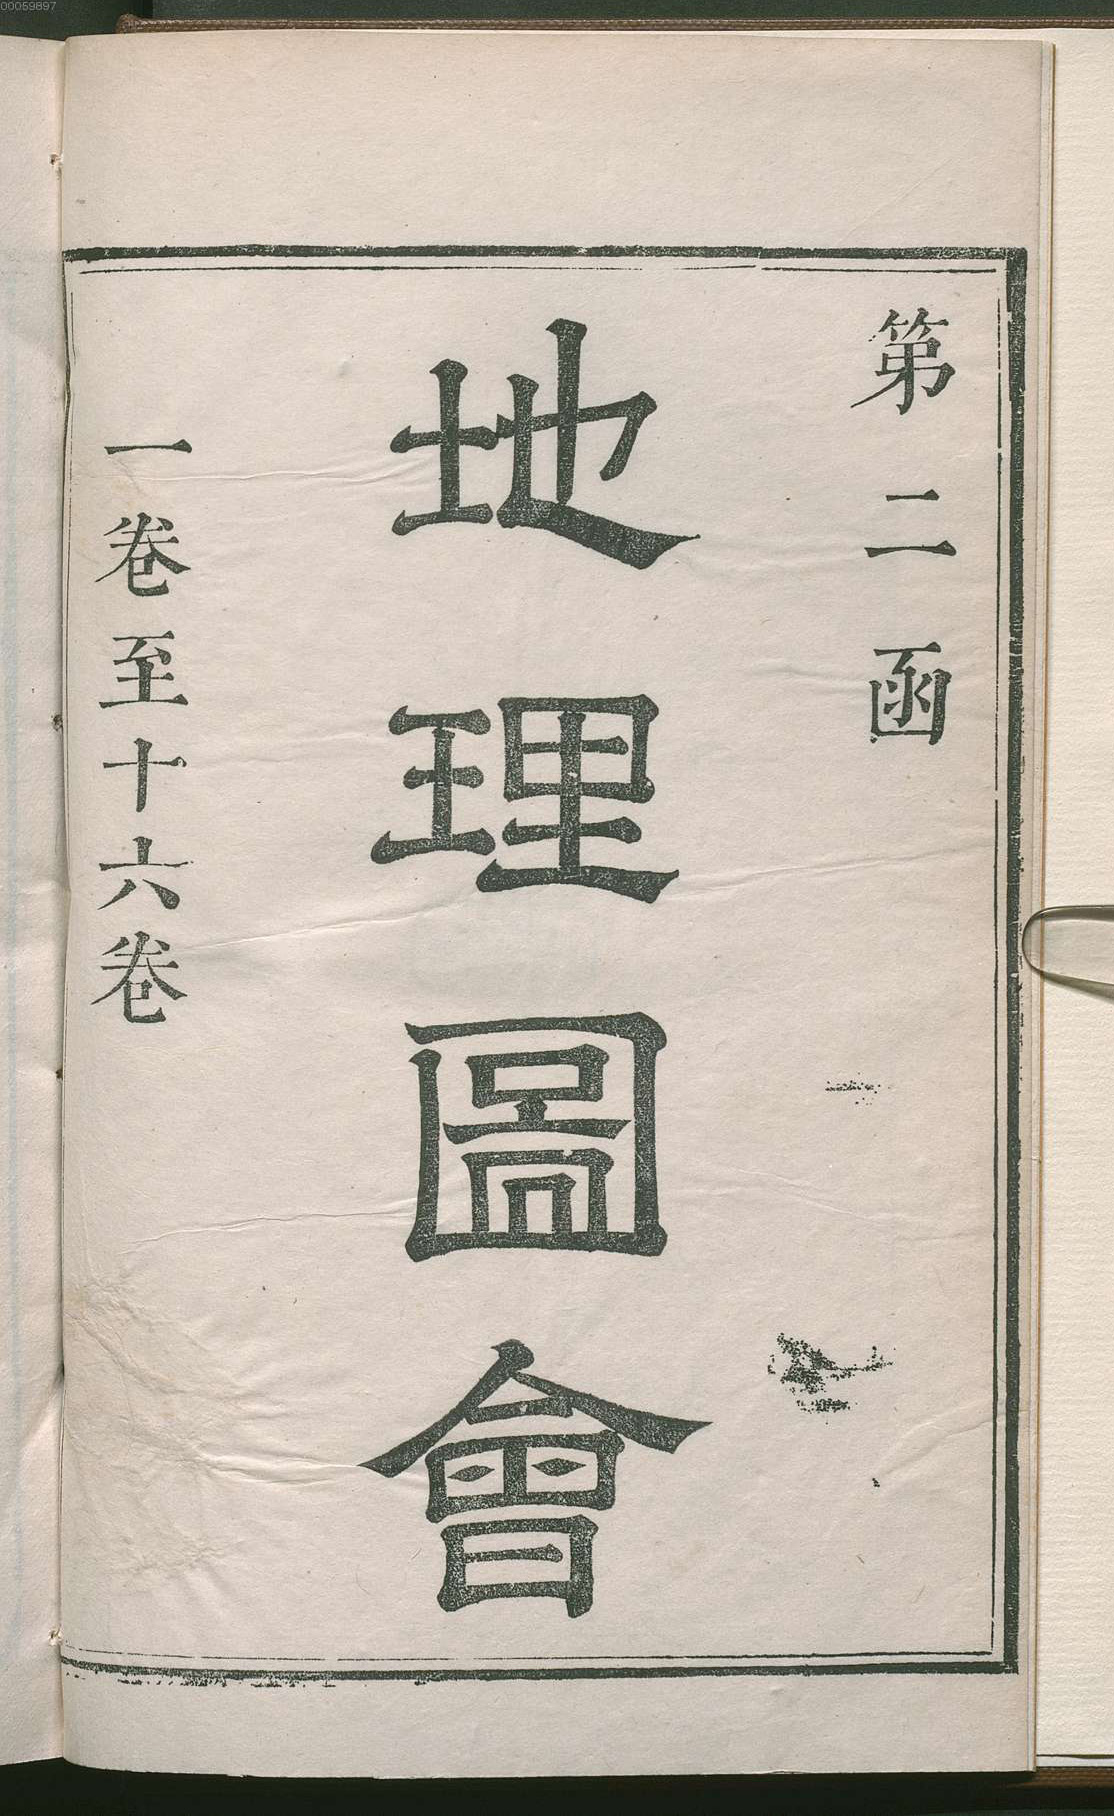 00059897
第二函
地理圖會
一卷至十六卷